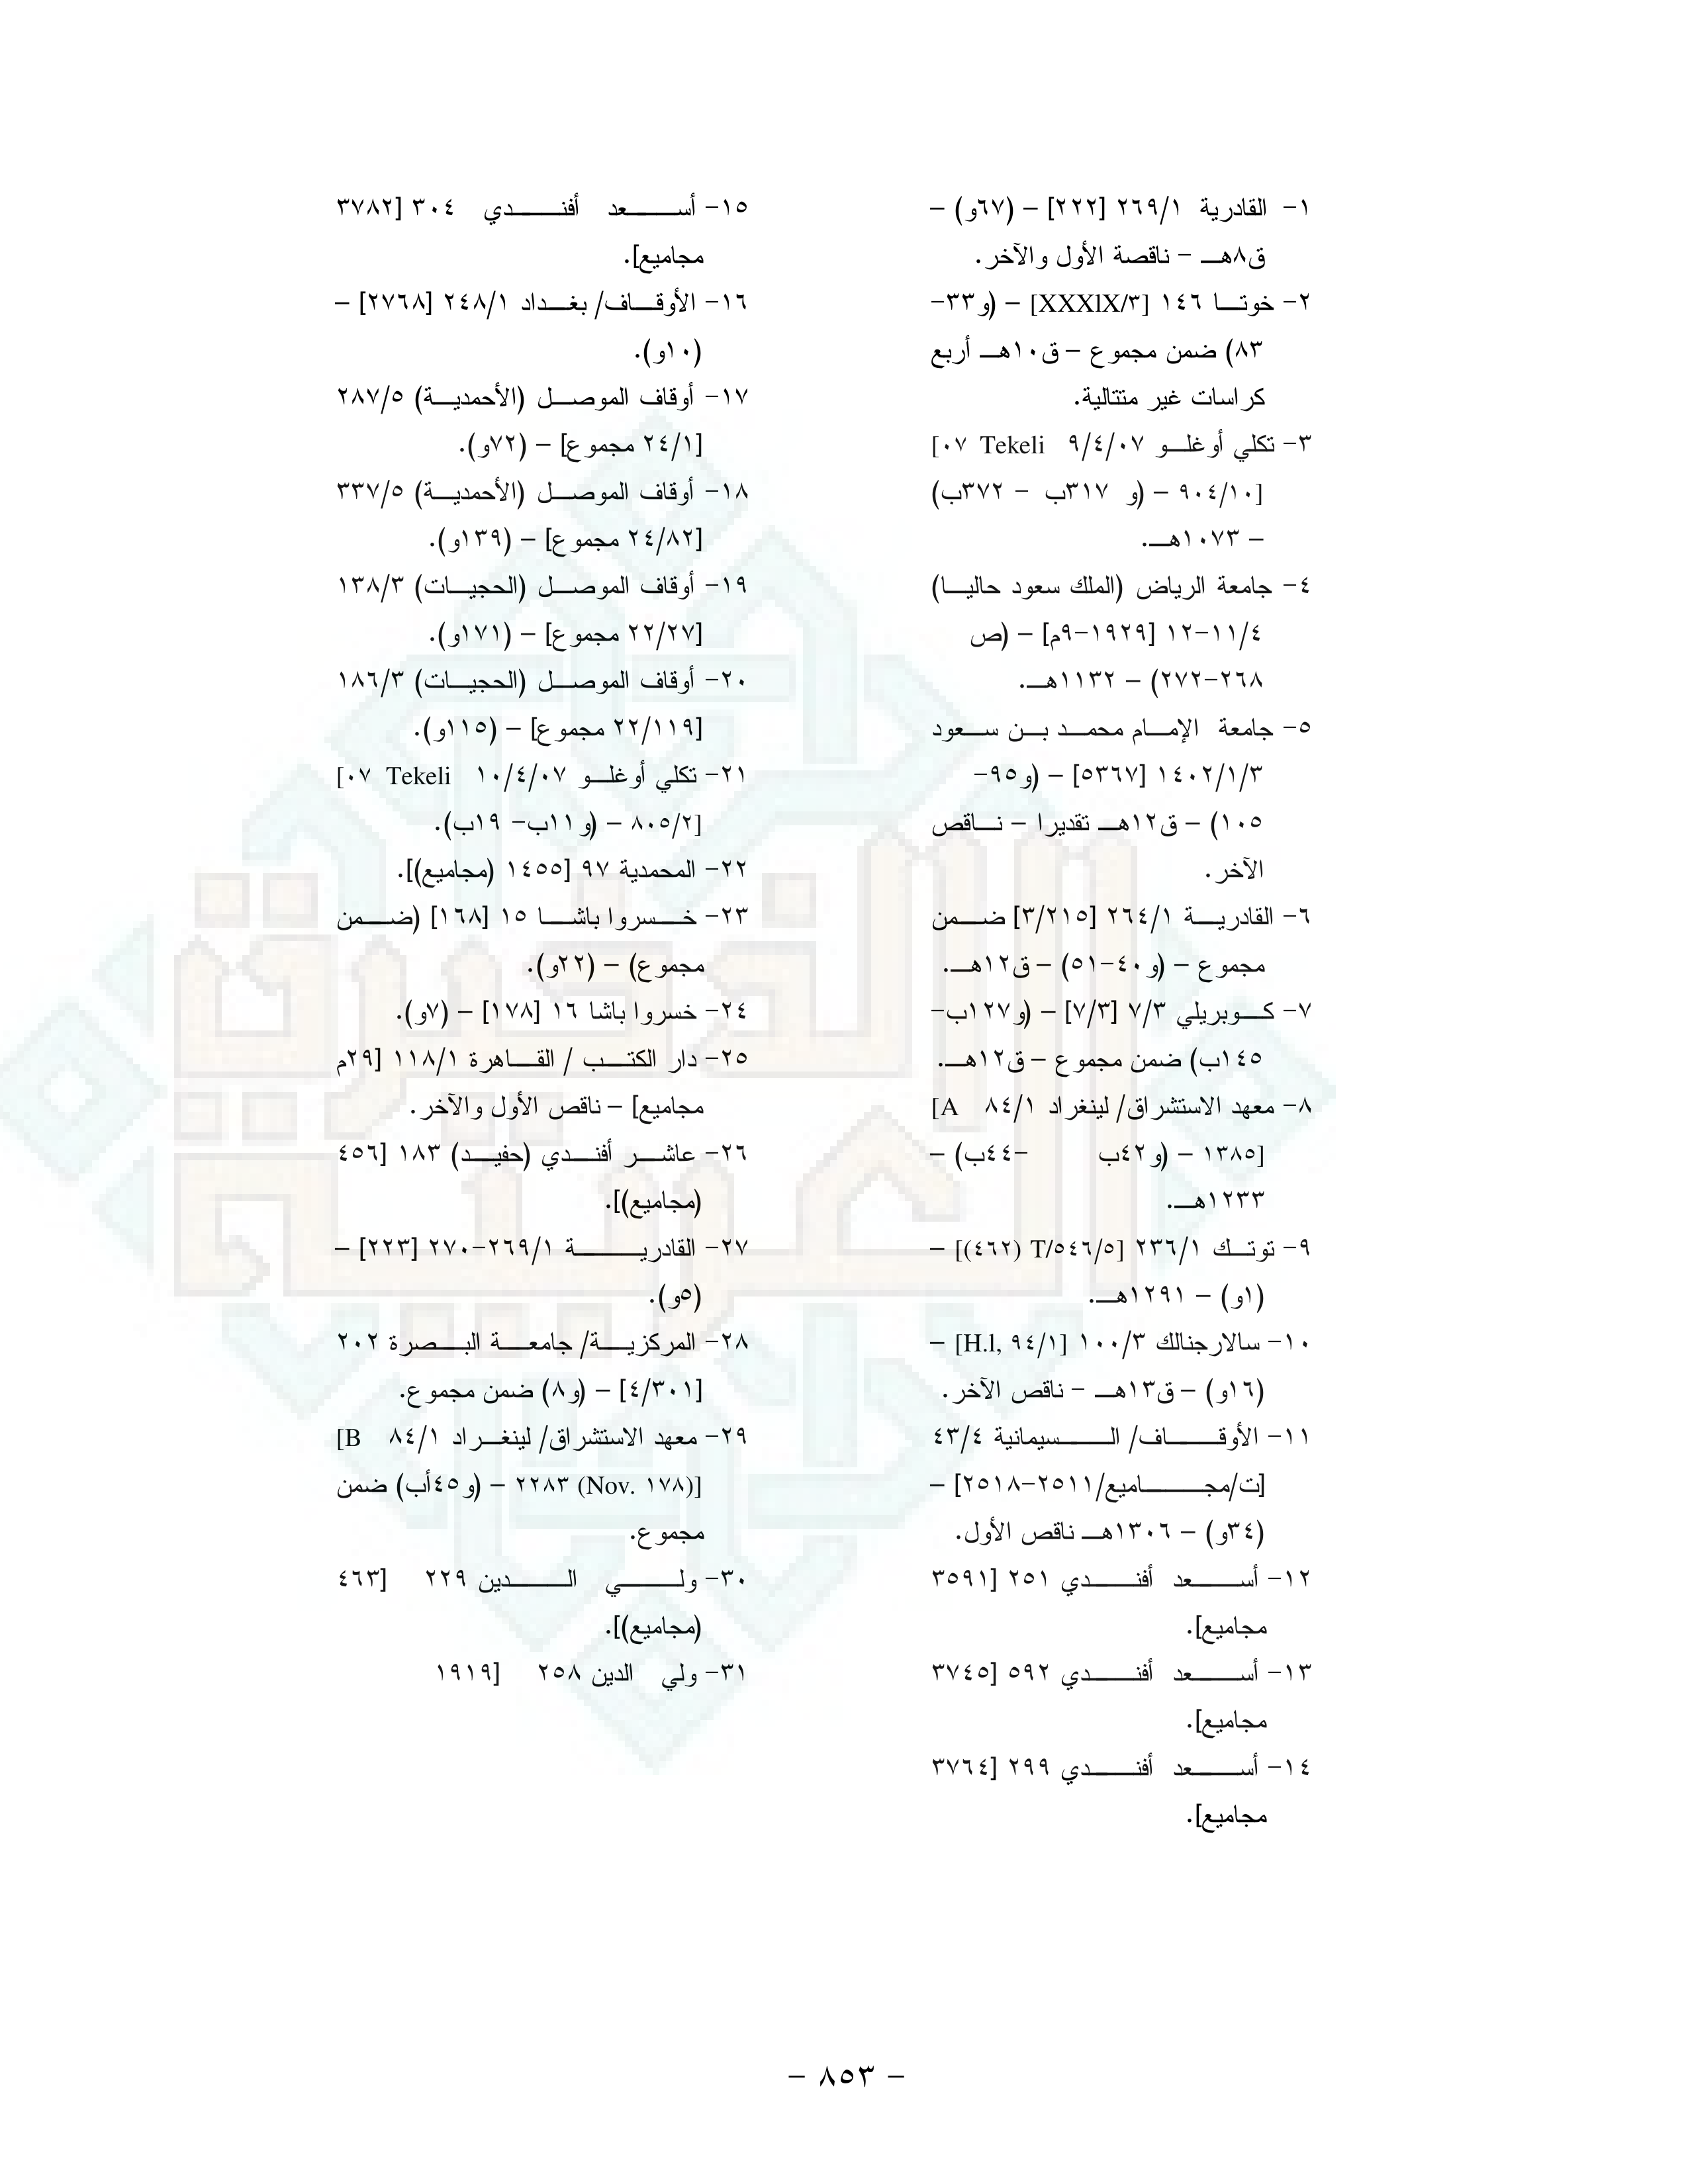 ١- القادرية ٢٦٩/١ [٢٢٢] – (٦٧و) –
ق٨هـ – ناقصة الأول والآخر.
٢- خوتا ١٤٦ [XXXlX/٣] – (و٣٣-
٨٣) ضمن مجموع – ق١٠هـ أربع
كراسات غير متتالية.
٣- تكلي أوغلو ٩/٤/٠٧ [٠٧ Tekeli
٩٠٤/١٠] – (و ٣١٧ب – ٣٧٢ب)
– ١٠٧٣هـ.
٤- جامعة الرياض (الملك سعود حاليا)
١١/٤-١٢ [١٩٢٩-٩م] – (ص
٢٦٨-٢٧٢) – ١١٣٢هـ.
٥- جامعة الإمام محمد بن سعود
١٤٠٢/١/٣ [٥٣٦٧] – (و٩٥-
١٠٥) – ق١٢هـ تقديرا – ناقص
الآخر.
٦- القادرية ٢٦٤/١ [٣/٢١٥] ضمن
مجموع – (و٤٠-٥١) – ق١٢هـ.
٧- كوبريلي ٧/٣ [٧/٣] – (و١٢٧ب-
١٤٥ب) ضمن مجموع – ق١٢هـ.
٨- معهد الاستشراق/ لينغراد ٨٤/١ [A
١٣٨٥] – (و٤٢ب -٤٤ب) –
١٢٣٣هـ.
٩- توتك ٢٣٦/١ [T/٥٤٦/٥ (٤٦٢)] –
(١و) – ١٢٩١هـ.
١٠- سالارجنالك ١٠٠/٣ [H.l, ٩٤/١] –
(١٦و) – ق١٣هـ – ناقص الآخر.
١١- الأوقاف/ السيمانية ٤٣/٤
[ت/مجاميع/٢٥١١-٢٥١٨] –
(٣٤و) – ١٣٠٦هـ ناقص الأول.
١٢- أسعد أفندي ٢٥١ [٣٥٩١
مجاميع].
١٣- أسعد أفندي ٥٩٢ [٣٧٤٥
مجاميع].
١٤- أسعد أفندي ٢٩٩ [٣٧٦٤
مجاميع].
١٥- أسعد أفندي ٣٠٤ [٣٧٨٢
مجاميع].
١٦- الأوقاف/ بغداد ٢٤٨/١ [٢٧٦٨] –
(١٠و).
١٧- أوقاف الموصل (الأحمدية) ٢٨٧/٥
[٢٤/١ مجموع] – (٧٢و).
١٨- أوقاف الموصل (الأحمدية) ٣٣٧/٥
[٢٤/٨٢ مجموع] – (١٣٩و).
١٩- أوقاف الموصل (الحجيات) ١٣٨/٣
[٢٢/٢٧ مجموع] – (١٧١و).
٢٠- أوقاف الموصل (الحجيات) ١٨٦/٣
[٢٢/١١٩ مجموع] – (١١٥و).
٢١- تكلي أوغلو ١٠/٤/٠٧ [٠٧ Tekeli
٨٠٥/٢] – (و١١ب- ١٩ب).
٢٢- المحمدية ٩٧ [١٤٥٥ (مجاميع)].
٢٣- خسروا باشا ١٥ [١٦٨] (ضمن
مجموع) – (٢٢و).
٢٤- خسروا باشا ١٦ [١٧٨] – (٧و).
٢٥- دار الكتب / القاهرة ١١٨/١ [٢٩م
مجاميع] – ناقص الأول والآخر.
٢٦- عاشر أفندي (حفيد) ١٨٣ [٤٥٦
(مجاميع)].
٢٧- القادرية ٢٦٩/١-٢٧٠ [٢٢٣] –
(٥و).
٢٨- المركزية/ جامعة البصرة ٢٠٢
[٤/٣٠١] – (و٨) ضمن مجموع.
٢٩- معهد الاستشراق/ لينغراد ٨٤/١ [B
٢٢٨٣ (Nov. ١٧٨)] – (و٤٥أب) ضمن
مجموع.
٣٠- ولي الدين ٢٢٩ [٤٦٣
(مجاميع)].
٣١- ولي الدين ٢٥٨ [١٩١٩
– ٨٥٣ –
الذخيرة
العربية